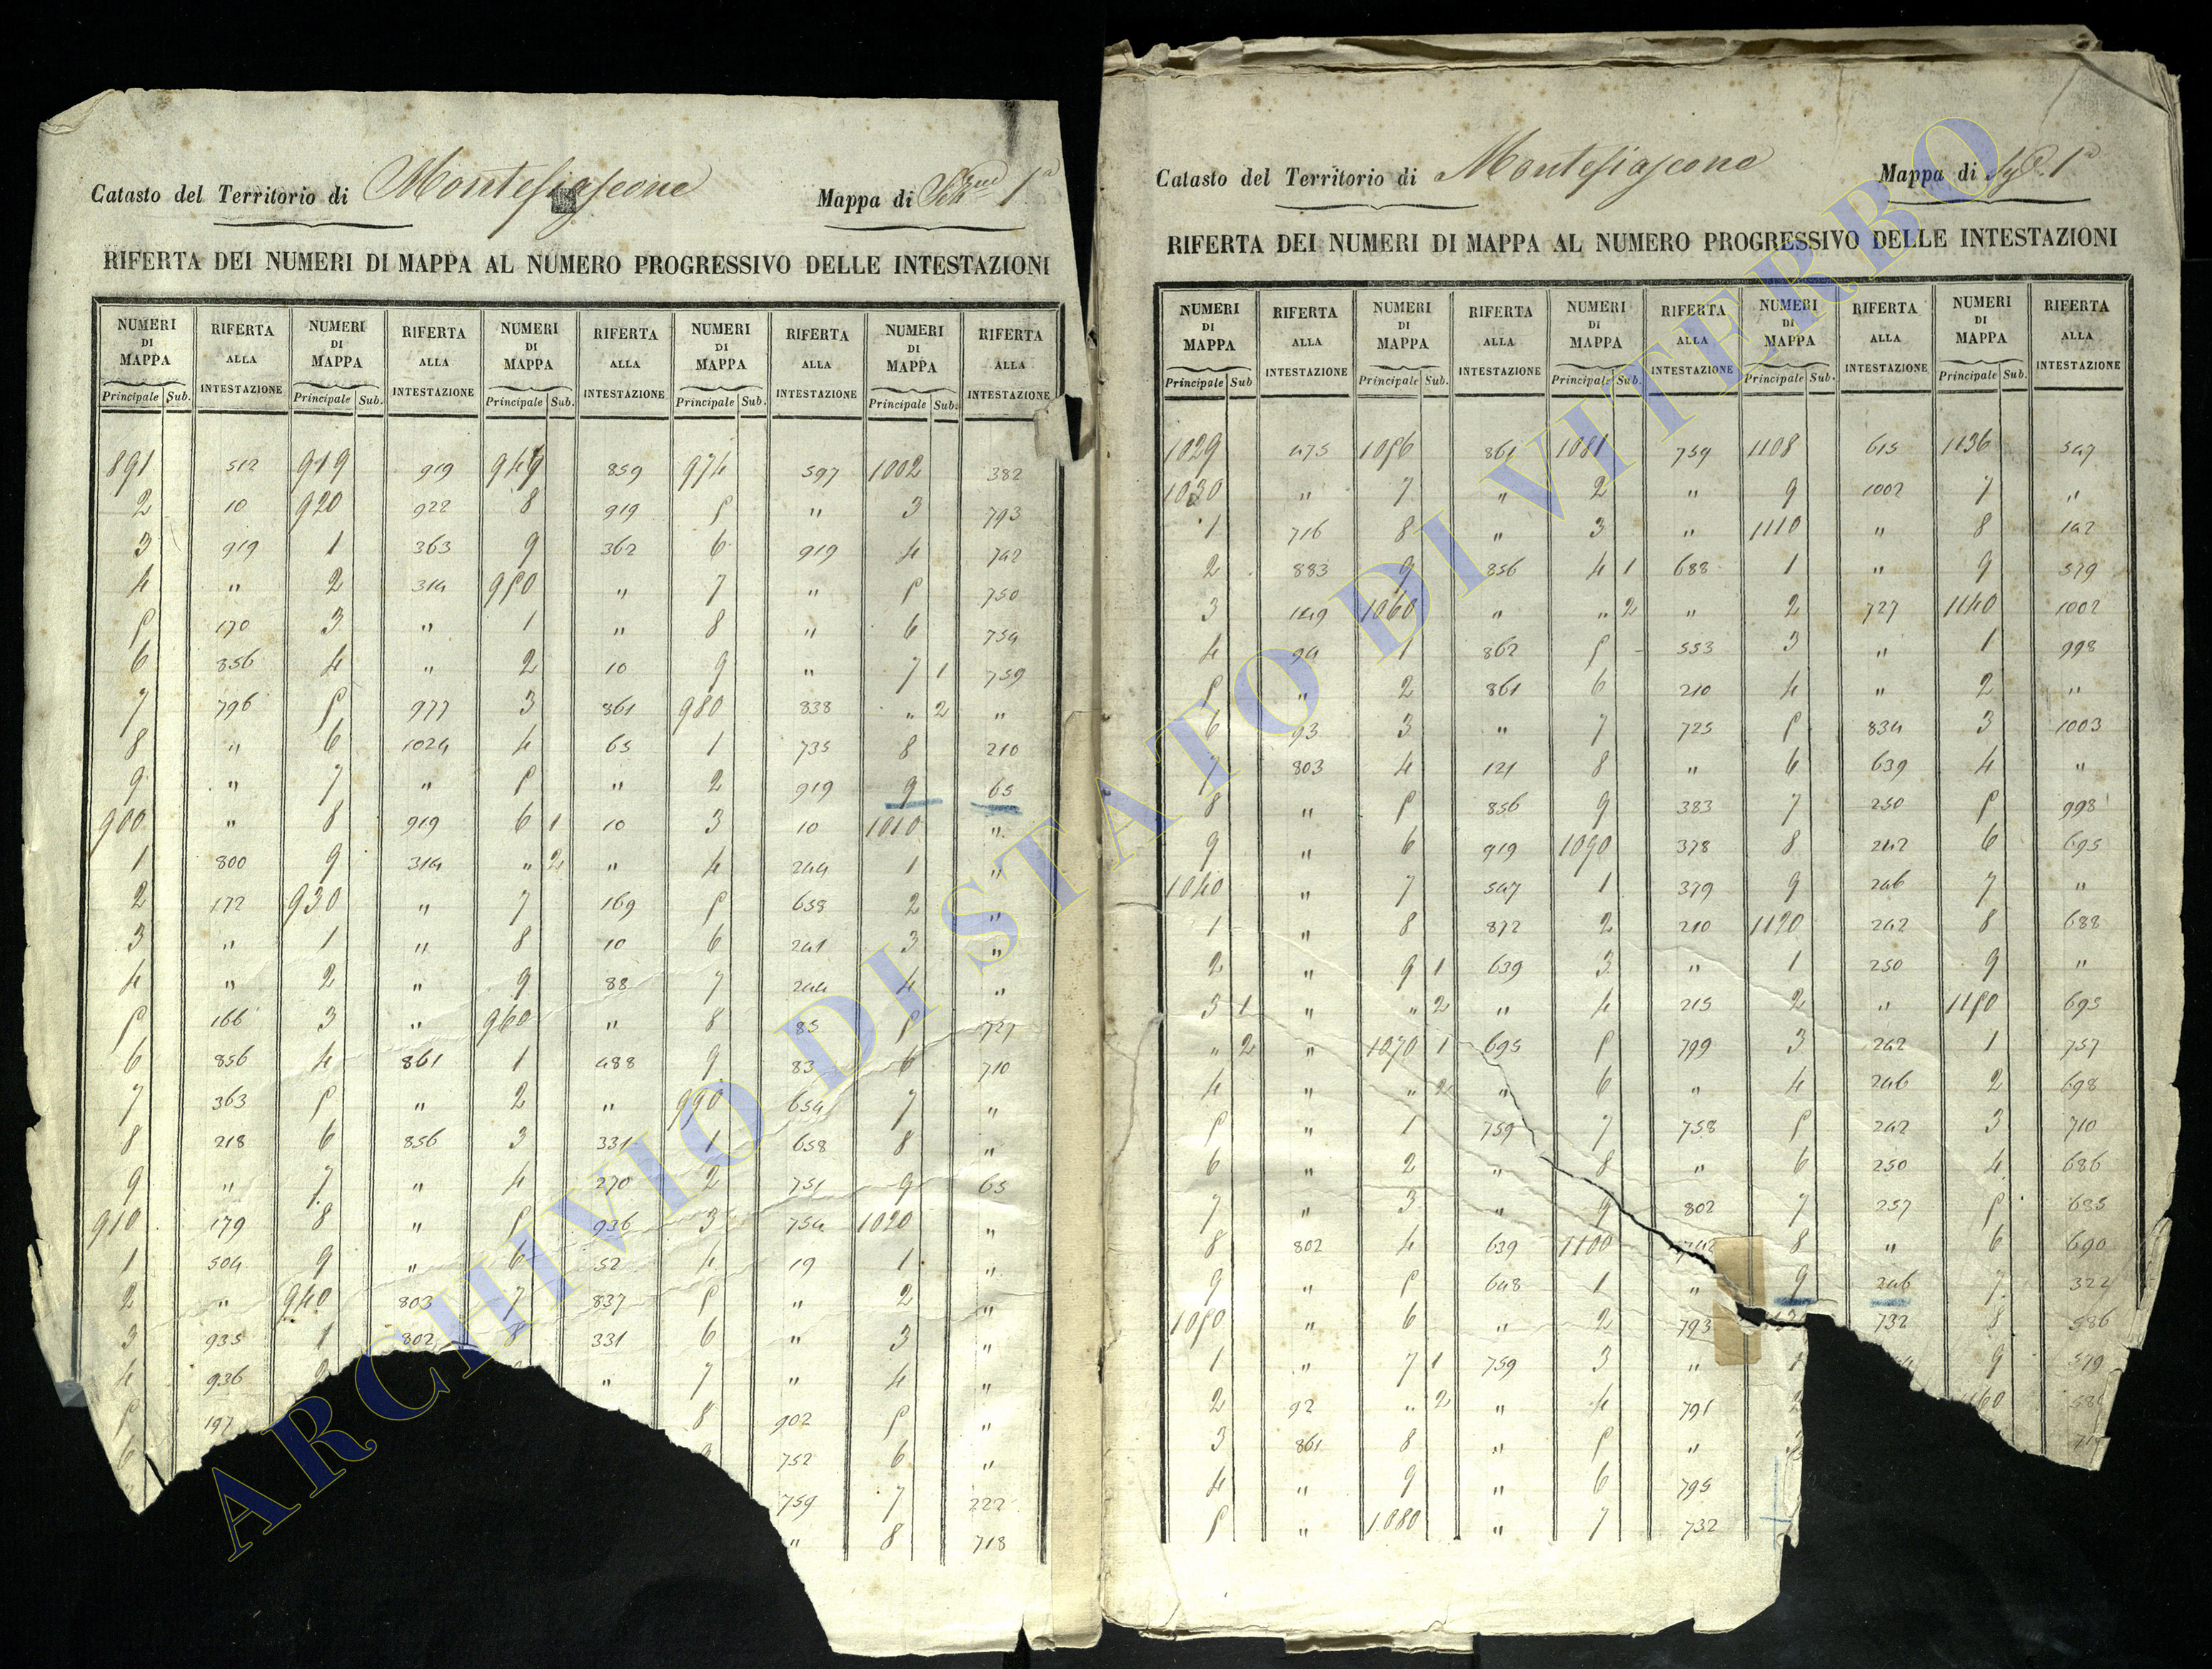 Catasto del Territorio di Montefiascone Mappa di Sez.ne 1a
RIFERTA DEI NUMERI DI MAPPA AL NUMERO PROGRESSIVO DELLE INTESTAZIONI
NUMERI DI MAPPA RIFERTA ALLA INTESTAZIONE NUMERI DI MAPPA RIFERTA ALLA INTESTAZIONE NUMERI DI MAPPA RIFERTA ALLA INTESTAZIONE NUMERI DI MAPPA RIFERTA ALLA INTESTAZIONE NUMERI DI MAPPA RIFERTA ALLA INTESTAZIONE
Principale Sub. Principale Sub. Principale Sub. Principale Sub. Principale Sub.
891 512 919 919 949 859 974 597 1002 382
2 10 920 922 8 919 5 " 3 793
3 919 1 363 9 362 6 919 4 742
4 " 2 314 950 " 7 " 5 750
5 170 3 " 1 " 8 " 6 754
6 856 4 " 2 10 9 " 7 1 759
7 796 5 977 3 861 980 838 " 2 "
8 " 6 1024 4 65 1 735 8 210
9 " 7 " 5 " 2 919 9 65
900 " 8 919 6 1 10 3 10 1010 "
1 800 9 314 " 2 " 4 244 1 "
2 172 930 " 7 169 5 658 2 "
3 " 1 " 8 10 6 241 3 "
4 " 2 " 9 88 7 244 4 "
5 166 3 " 960 " 8 85 5 727
6 856 4 861 1 488 9 83 6 710
7 363 5 " 2 " 990 654 7 "
8 218 6 856 3 331 1 658 8 "
9 " 7 " 4 270 2 751 9 65
910 179 8 " 5 936 3 754 1020 "
1 504 9 " 6 52 4 19 1 "
2 " 940 803 7 837 5 " 2 "
3 935 1 802 8 331 6 " 3 "
4 936 " 7 " 4 "
5 197 8 902 5 "
6 752 6 "
759 7 222
" 8 718
Catasto del Territorio di Montefiascone Mappa di 1a
RIFERTA DEI NUMERI DI MAPPA AL NUMERO PROGRESSIVO DELLE INTESTAZIONI
NUMERI DI MAPPA RIFERTA ALLA INTESTAZIONE NUMERI DI MAPPA RIFERTA ALLA INTESTAZIONE NUMERI DI MAPPA RIFERTA ALLA INTESTAZIONE NUMERI DI MAPPA RIFERTA ALLA INTESTAZIONE NUMERI DI MAPPA RIFERTA ALLA INTESTAZIONE
Principale Sub Principale Sub. Principale Sub. Principale Sub. Principale Sub.
1029 475 1056 861 1081 759 1108 615 1136 547
1030 " 7 " 2 " 9 1002 7 "
1 716 8 " 3 " 1110 " 8 142
2 883 9 856 4 1 688 1 " 9 579
3 149 1060 " " 2 " 2 727 1140 1002
4 94 1 862 5 553 3 " 1 998
5 " 2 861 6 210 4 " 2 "
6 93 3 " 7 725 5 834 3 1003
7 803 4 121 8 " 6 639 4 "
8 " 5 856 9 383 7 250 5 998
9 " 6 919 1090 378 8 242 6 695
1040 " 7 547 1 379 9 246 7 "
1 " 8 872 2 210 1120 242 8 688
2 " 9 1 639 3 " 1 250 9 "
3 1 " " 2 " 4 215 2 " 1150 695
" 2 " 1070 1 695 5 799 3 242 1 757
4 " " 2 " 6 " 4 246 2 698
5 " 1 759 7 758 5 242 3 710
6 " 2 " 8 " 6 250 4 686
7 " 3 " 9 802 7 257 5 685
8 802 4 639 1100 742 8 " 6 690
9 " 5 648 1 " 9 246 7 322
1050 " 6 " 2 793 732 8 586
1 " 7 1 759 3 " 1 9 579
2 92 " 2 " 4 791 2 1160
3 861 8 " 5 " 3
4 " 9 " 6 795
5 " 1080 " 7 732
ARCHIVIO DI STATO DI VITERBO